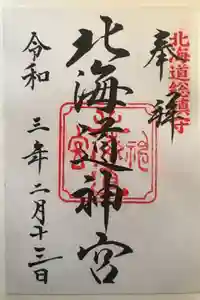 北海道総鎮守
奉拝
北海道神宮
令和三年二月十三日